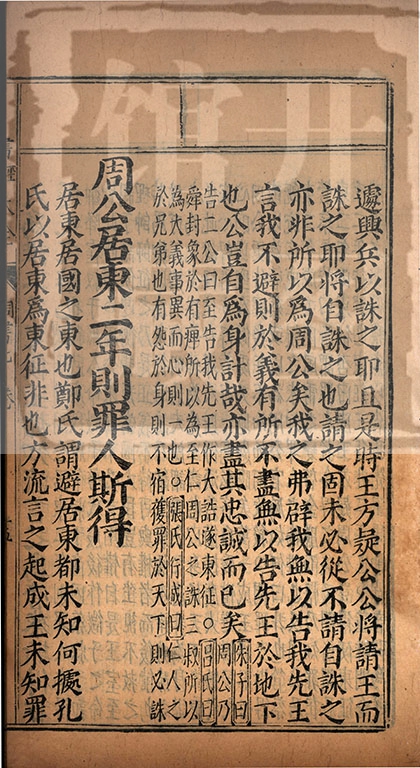 遽興兵以誅之耶且是時王方疑公公將請王而
誅之耶將自誅之也請之固未必從不請自誅之
亦非所以爲周公矣我之弗辟我無以告我先王
言我不避則於義有所不盡無以告先王於地下
也公豈自爲身計哉亦盡其忠誠而已矣
朱子曰
周公乃
告二公曰至告我先王作大誥遂東征○呂氏曰
舜封象於有庳所以為至仁周公之誅三叔所以
為大義事異而心則一也○張氏行成曰仁人之
於兄弟也有怨於身則不宿獲罪於天下則必誅
周公居東二年則罪人斯得
居東居國之東也鄭氏謂避居東都未知何據孔
氏以居東爲東征非也方流言之起成王未知罪